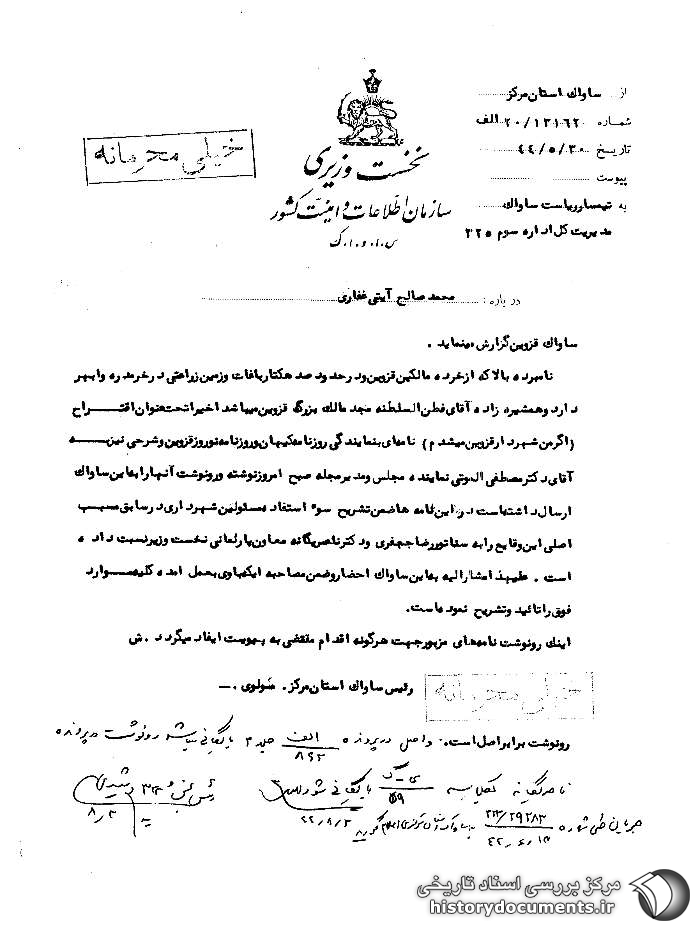 از ساواك استان مرکز
شماره ۲۰/۱۳۱۶۲۰ الف
تاریخ ۴۴/۵/۳۰
پیوست
به تیمسار ریاست ساواك
مدیریت کل اداره سوم ۳۲۵
خیلی محرمانه
نخست وزیری
سازمان اطلاعات و امنیت کشور
س.ا.و.ا.ک
درباره: محمد صالح آیتی غفاری
ساواك قزوین گزارش مینماید .
نامبرده بالا که از خرده مالکین قزوین و در حدود صد هکتار باغات و زمین زراعتی در خرمدره و ابهر
دارد و همشیره زاده آقای فطن السلطنه مجد مالك بزرگ قزوین میباشد اخیرا تحت عنوان اقتراح
(اگر من شهردار قزوین میشدم) نامه‌ای بنمایندگی روزنامه کیهان و روزنامه نوروز قزوین و شرحی نیز به
آقای دکتر مصطفی الموتی نماینده مجلس و مدیر مجله صبح امروز نوشته و رونوشت آنها را به این ساواك
ارسال داشته است در این نامه ها ضمن تشریح سوء استفاده مسئولین شهرداری در سابق مسبب
اصلی این وقایع را به سناتور رضا جعفری و دکتر ناصر یگانه معاون پارلمانی نخست وزیر نسبت داده
است . علیهذا مشارالیه به این ساواك احضار و ضمن مصاحبه ایکه با وی بعمل آمده کلیه موارد
فوق را تائید و تشریح نموده است.
اینك رونوشت نامه‌های مزبور جهت هرگونه اقدام مقتضی به پیوست ایفاد میگردد .ش
رئیس ساواك استان مرکز . مولوی .
خیلی محرمانه
رونوشت برابر اصل است. و اصل در پرونده الف ۸۹۲ جلد ۲ بایگانی رونوشت در پرونده
ناصر یگانه بایگانی
رئیس بخش رشیدی
۸/۳
جریان طی شماره ۲۹۲۸۳
مرکز بررسی اسناد تاریخی
historydocuments.ir